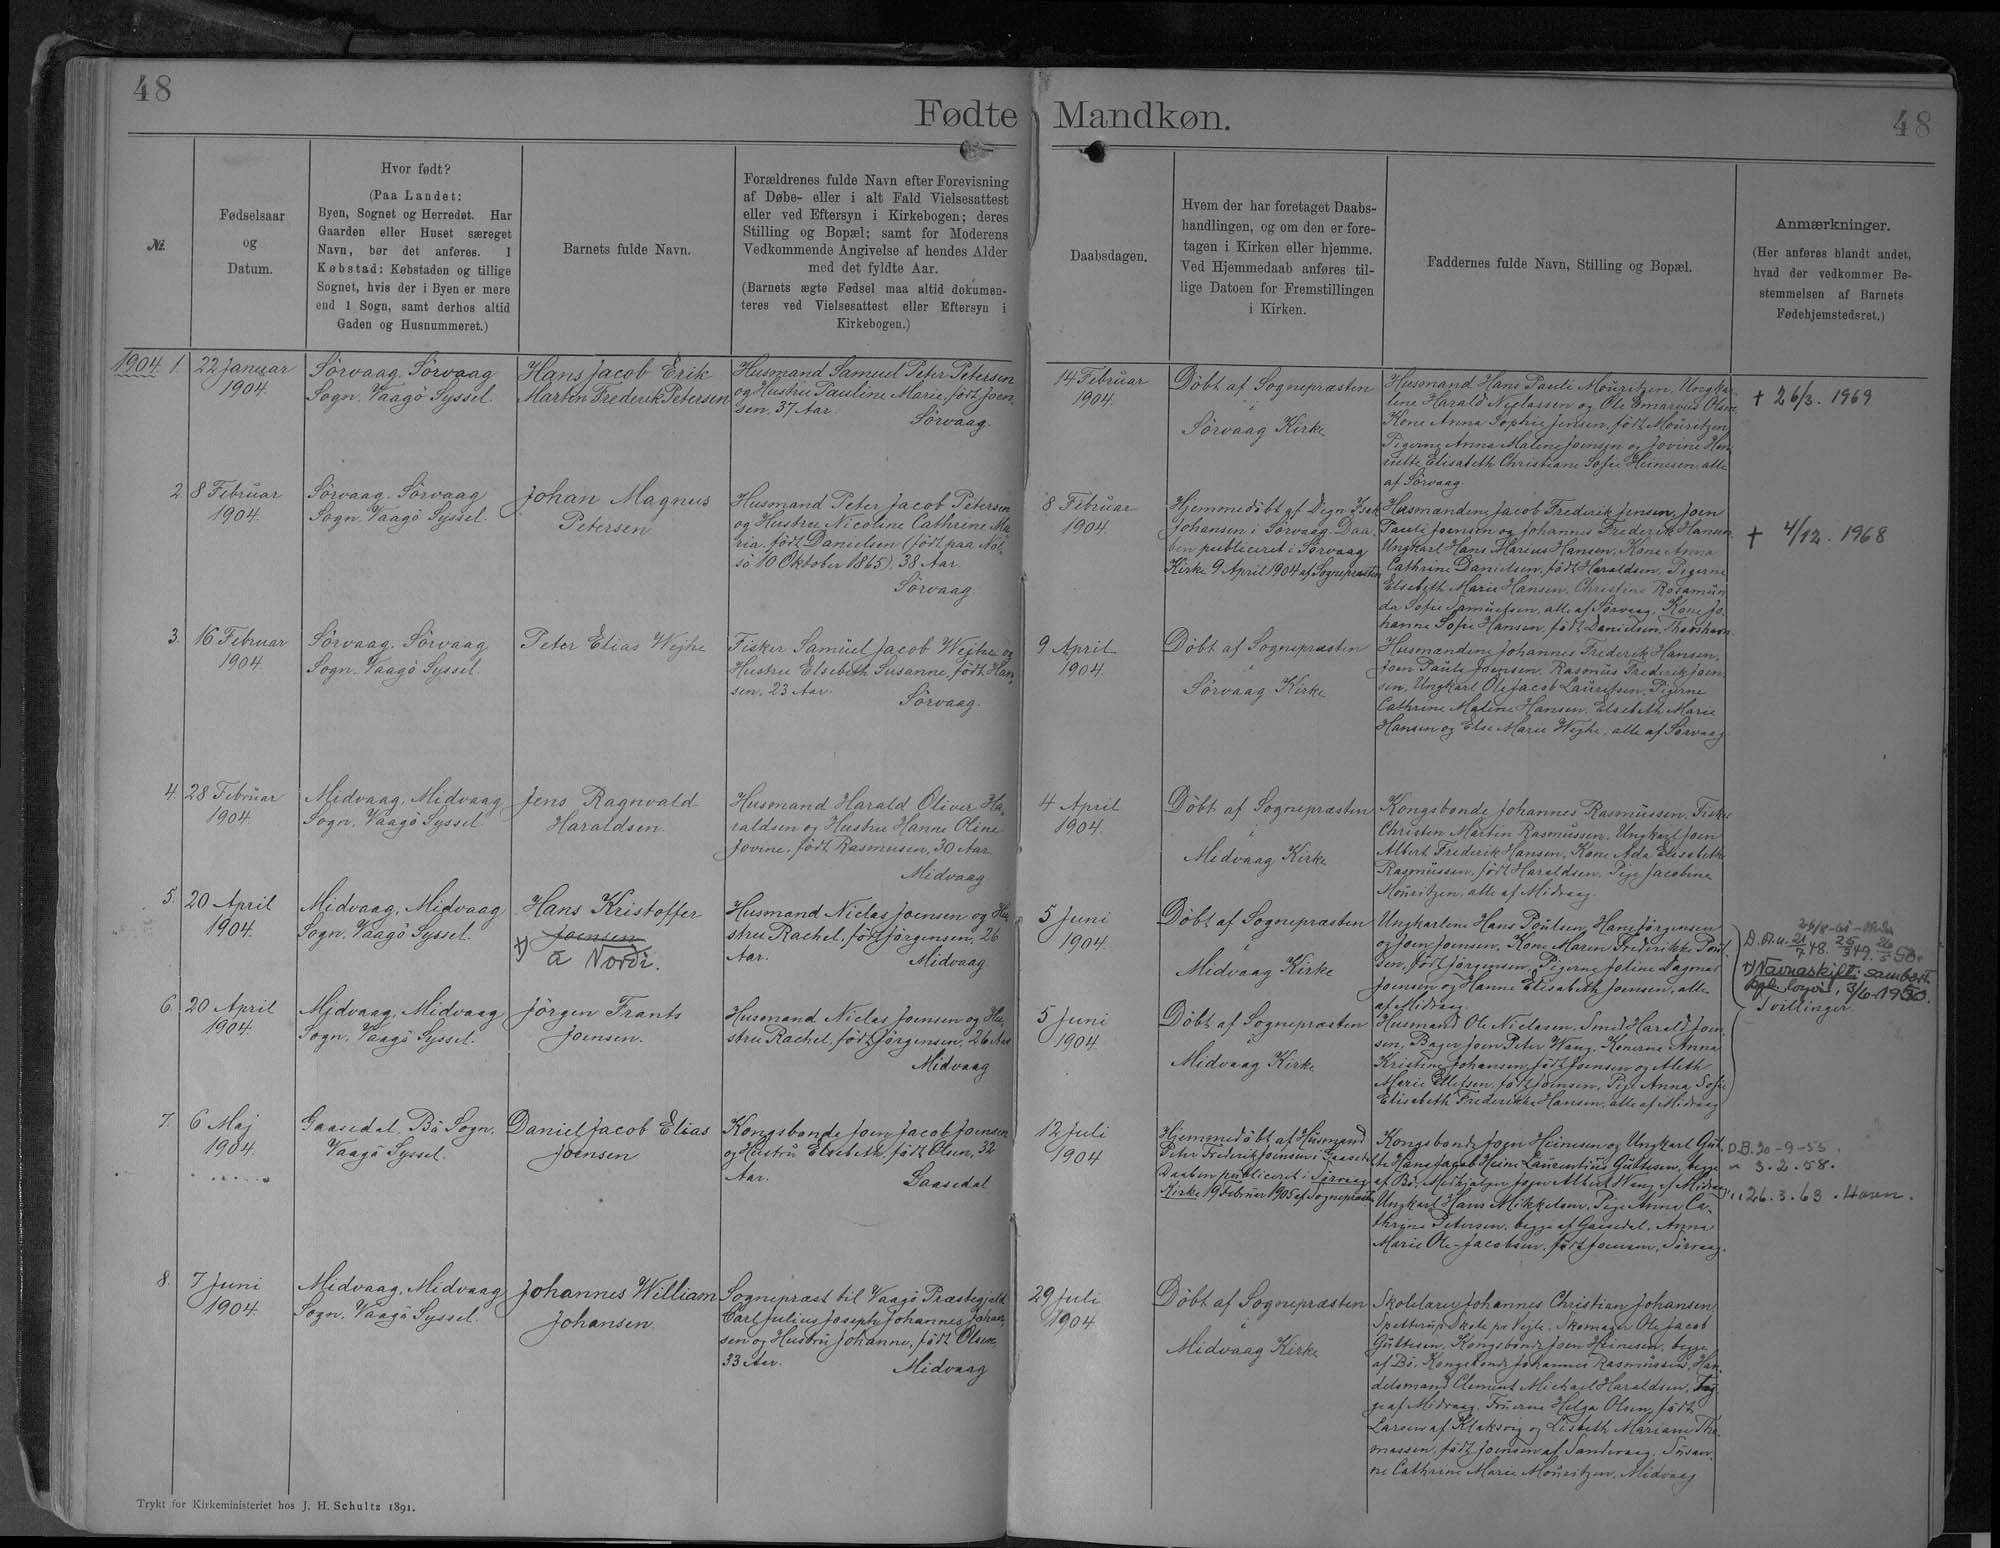 48
Fødte Mandkøn.
48
Nr.
Fødselsaar
og
Datum.
Hvor født?
(Paa Landet:
Byen, Sognet og Herredet. Har
Gaarden eller Huset særeget
Navn, bør det anføres. I
Købstad: Købstaden og tillige
Sognet, hvis der i Byen er mere
end 1 Sogn, samt derhos altid
Gaden og Husnummeret.)
Barnets fulde Navn.
Forældrenes fulde Navn efter Forevisning
af Døbe- eller i alt Fald Vielsesattest
eller ved Eftersyn i Kirkebogen; deres
Stilling og Bopæl; samt for Moderens
Vedkommende Angivelse af hendes Alder
med det fyldte Aar.
(Barnets ægte Fødsel maa altid dokumen-
teres ved Vielsesattest eller Eftersyn i
Kirkebogen.)
Daabsdagen.
Hvem der har foretaget Daabs-
handlingen, og om den er fore-
tagen i Kirken eller hjemme.
Ved Hjemmedaab anføres til-
lige Datoen for Fremstillingen
i Kirken.
Faddernes fulde Navn, Stilling og Bopæl.
Anmærkninger.
(Her anføres blandt andet,
hvad der vedkommer Be-
stemmelsen af Barnets
Fødehjemstedsret.)
1904. 1.
22 Januar
1904.
Sörvaag. Sörvaag
Sogn. Vaagö Syssel.
Hans Jacob Erik
Martin Frederik Petersen
Husmand Samuel Peter Petersen
og Hustru Pauline Marie, født Joen-
sen, 37 Aar.
Sörvaag.
14 Februar
1904.
Döbt af Sognepræsten
i
Sörvaag Kirke
Husmand Hans Pauli Mouritzen, Ungkar-
lene Harald Niclassen og Ole Emarius Olsen,
Kone Anna Sophie Jensen, født Mouritzen,
Pigerne Anna Malene Joensen og Jovine Hen-
riette Elisabeth Christiane Sofie Heinesen, alle
af Sörvaag.
+ 26/3. 1969
2.
8 Februar
1904.
Sörvaag. Sörvaag
Sogn. Vaagö Syssel.
Johan Magnus
Petersen
Husmand Peter Jacob Petersen
og Hustru Nicoline Cathrine Ma-
ria, født Danielsen (født paa Nol-
sö 10 Oktober 1865), 38 Aar.
Sörvaag.
8 Februar
1904.
Hjemmedöbt af Degn Isak
Johansen i Sörvaag. Daa-
ben publiceret i Sörvaag
Kirke 9 April 1904 af Sognepræsten
Husmændene Jacob Frederik Jensen, Joen
Pauli Joensen og Johannes Frederik Hansen,
Ungkarl Hans Marius Hansen, Kone Anna
Cathrine Danielsen, født Haraldsen, Pigerne
Elsebeth Marie Hansen, Christine Rosamun-
da Sofie Samuelsen, alle af Sörvaag, Kone Jo-
hanne Sofie Hansen, født Danielsen, Thorshavn.
+ 4/12. 1968
3.
16 Februar
1904.
Sörvaag. Sörvaag
Sogn. Vaagö Syssel.
Peter Elias Wejhe
Fisker Samuel Jacob Wejhe og
Hustru Elsebeth Susanne, født Han-
sen, 23 Aar.
Sörvaag.
9 April
1904.
Döbt af Sognepræsten
i
Sörvaag Kirke
Husmændene Johannes Frederik Hansen,
Joen Pauli Joensen, Rasmus Frederik Joen-
sen, Ungkarl Ole Jacob Lauritsen, Pigerne
Cathrine Malene Hansen, Elsebeth Marie
Hansen og Else Marie Wejhe, alle af Sörvaag
4.
28 Februar
1904.
Midvaag, Midvaag
Sogn. Vaagö Syssel
Jens Ragnvald
Haraldsen.
Husmand Harald Oliver Ha-
raldsen og Hustru Hanne Oline
Jovine, født Rasmussen, 30 Aar
Midvaag
4 April
1904.
Döbt af Sognepræsten
i
Midvaag Kirke
Kongsbonde Johannes Rasmussen, Fisker
Christen Martin Rasmussen, Ungkarl Joen
Albert Frederik Hansen, Kone Ada Elisabeth
Rasmussen, født Haraldsen, Pige Jacobine
Mouritzen, alle af Midvaag.
5.
20 April
1904.
Midvaag, Midvaag
Sogn. Vaagö Syssel.
Hans Kristoffer
Joensen
+) á Nordi.
Husmand Niclas Joensen og Hu-
stru Rachel, født Jörgensen, 26
Aar.
Midvaag
5 Juni
1904.
Döbt af Sognepræsten
i
Midvaag Kirke
Ungkarlene Hans Poulsen, Hans Jörgensen
og Joen Joensen, Kone Maren Frederikke Poul-
sen, født Jörgensen, Pigerne Joline Dagmar
Joensen og Hanne Elisabeth Joensen, alle
af Midvaag.
+) Navnaskifti sambært
lógir, 3/6-1950.
Tvillinger.
6.
20 April
1904.
Midvaag, Midvaag
Sogn. Vaagö Syssel.
Jörgen Frants
Joensen.
Husmand Niclas Joensen og Hu-
stru Rachel, født Jörgensen, 26 Aar
Midvaag
5 Juni
1904.
Döbt af Sognepræsten
i
Midvaag Kirke
Husmand Ole Niclasen, Smed Harald Joen-
sen, Bager Joen Peter Wang, Konerne Anna
Kristine Johansen, født Joensen og Aleth
Marie Ellefsen, født Joensen, Pige Anna Sofie
Elisabeth Frederikke Hansen, alle af Midvaag
7.
6 Maj
1904.
Gaasedal, Bö Sogn.
Vaagö Syssel.
Daniel Jacob Elias
Joensen
Kongsbonde Joen Jacob Joensen
og Hustru Elsebeth, født Olsen, 32
Aar.
Gaasedal
12 Juli
1904
Hjemmedöbt af Husmand
Peter Frederik Joensen i Gaasedal
Daaben publiceret i Sörvaag
Kirke 19 Februar 1905 af Sognepræsten
Kongsbonde Joen Heinesen og Ungkarl Gut-
te Hans Jacob Heine Laurentius Guttesen, begge
af Bö, Medhjælper Joen Albert Wang af Midvaag,
Ungkarl Hans Mikkelsen, Pige Anna Ca-
thrine Petersen, begge af Gaasedal, Anna
Marie Ole-Jacobsen, født Joensen, Sörvaag.
D.A. 30-9-55.
" 3.2.58.
" 26.3.63.
8.
7 Juni
1904.
Midvaag, Midvaag
Sogn. Vaagö Syssel.
Johannes William
Johansen.
Sognepræst til Vaagö Præstegjeld
Carl Julius Joseph Johannes Johan-
sen og Hustru Johanne, født Olsen,
33 Aar.
Midvaag
29 Juli
1904
Döbt af Sognepræsten
i
Midvaag Kirke
Skolelærer Johannes Christian Johansen,
Skole pr Vejle, Skomager Ole Jacob
Guttesen, Kongsbonde Joen Heinesen, begge
af Bö, Kongsbonde Johannes Rasmussen, Han-
delsmand Clement Michael Haraldsen, beg-
ge af Midvaag, Fruerne Helga Olsen, født
Larsen af Klaksvig og Lisbeth Mariane Tho-
massen, født Joensen af Sandevaag, Susan-
ne Cathrine Marie Mouritzen, Midvaag
Trykt for Kirkeministeriet hos J. H. Schultz 1891.